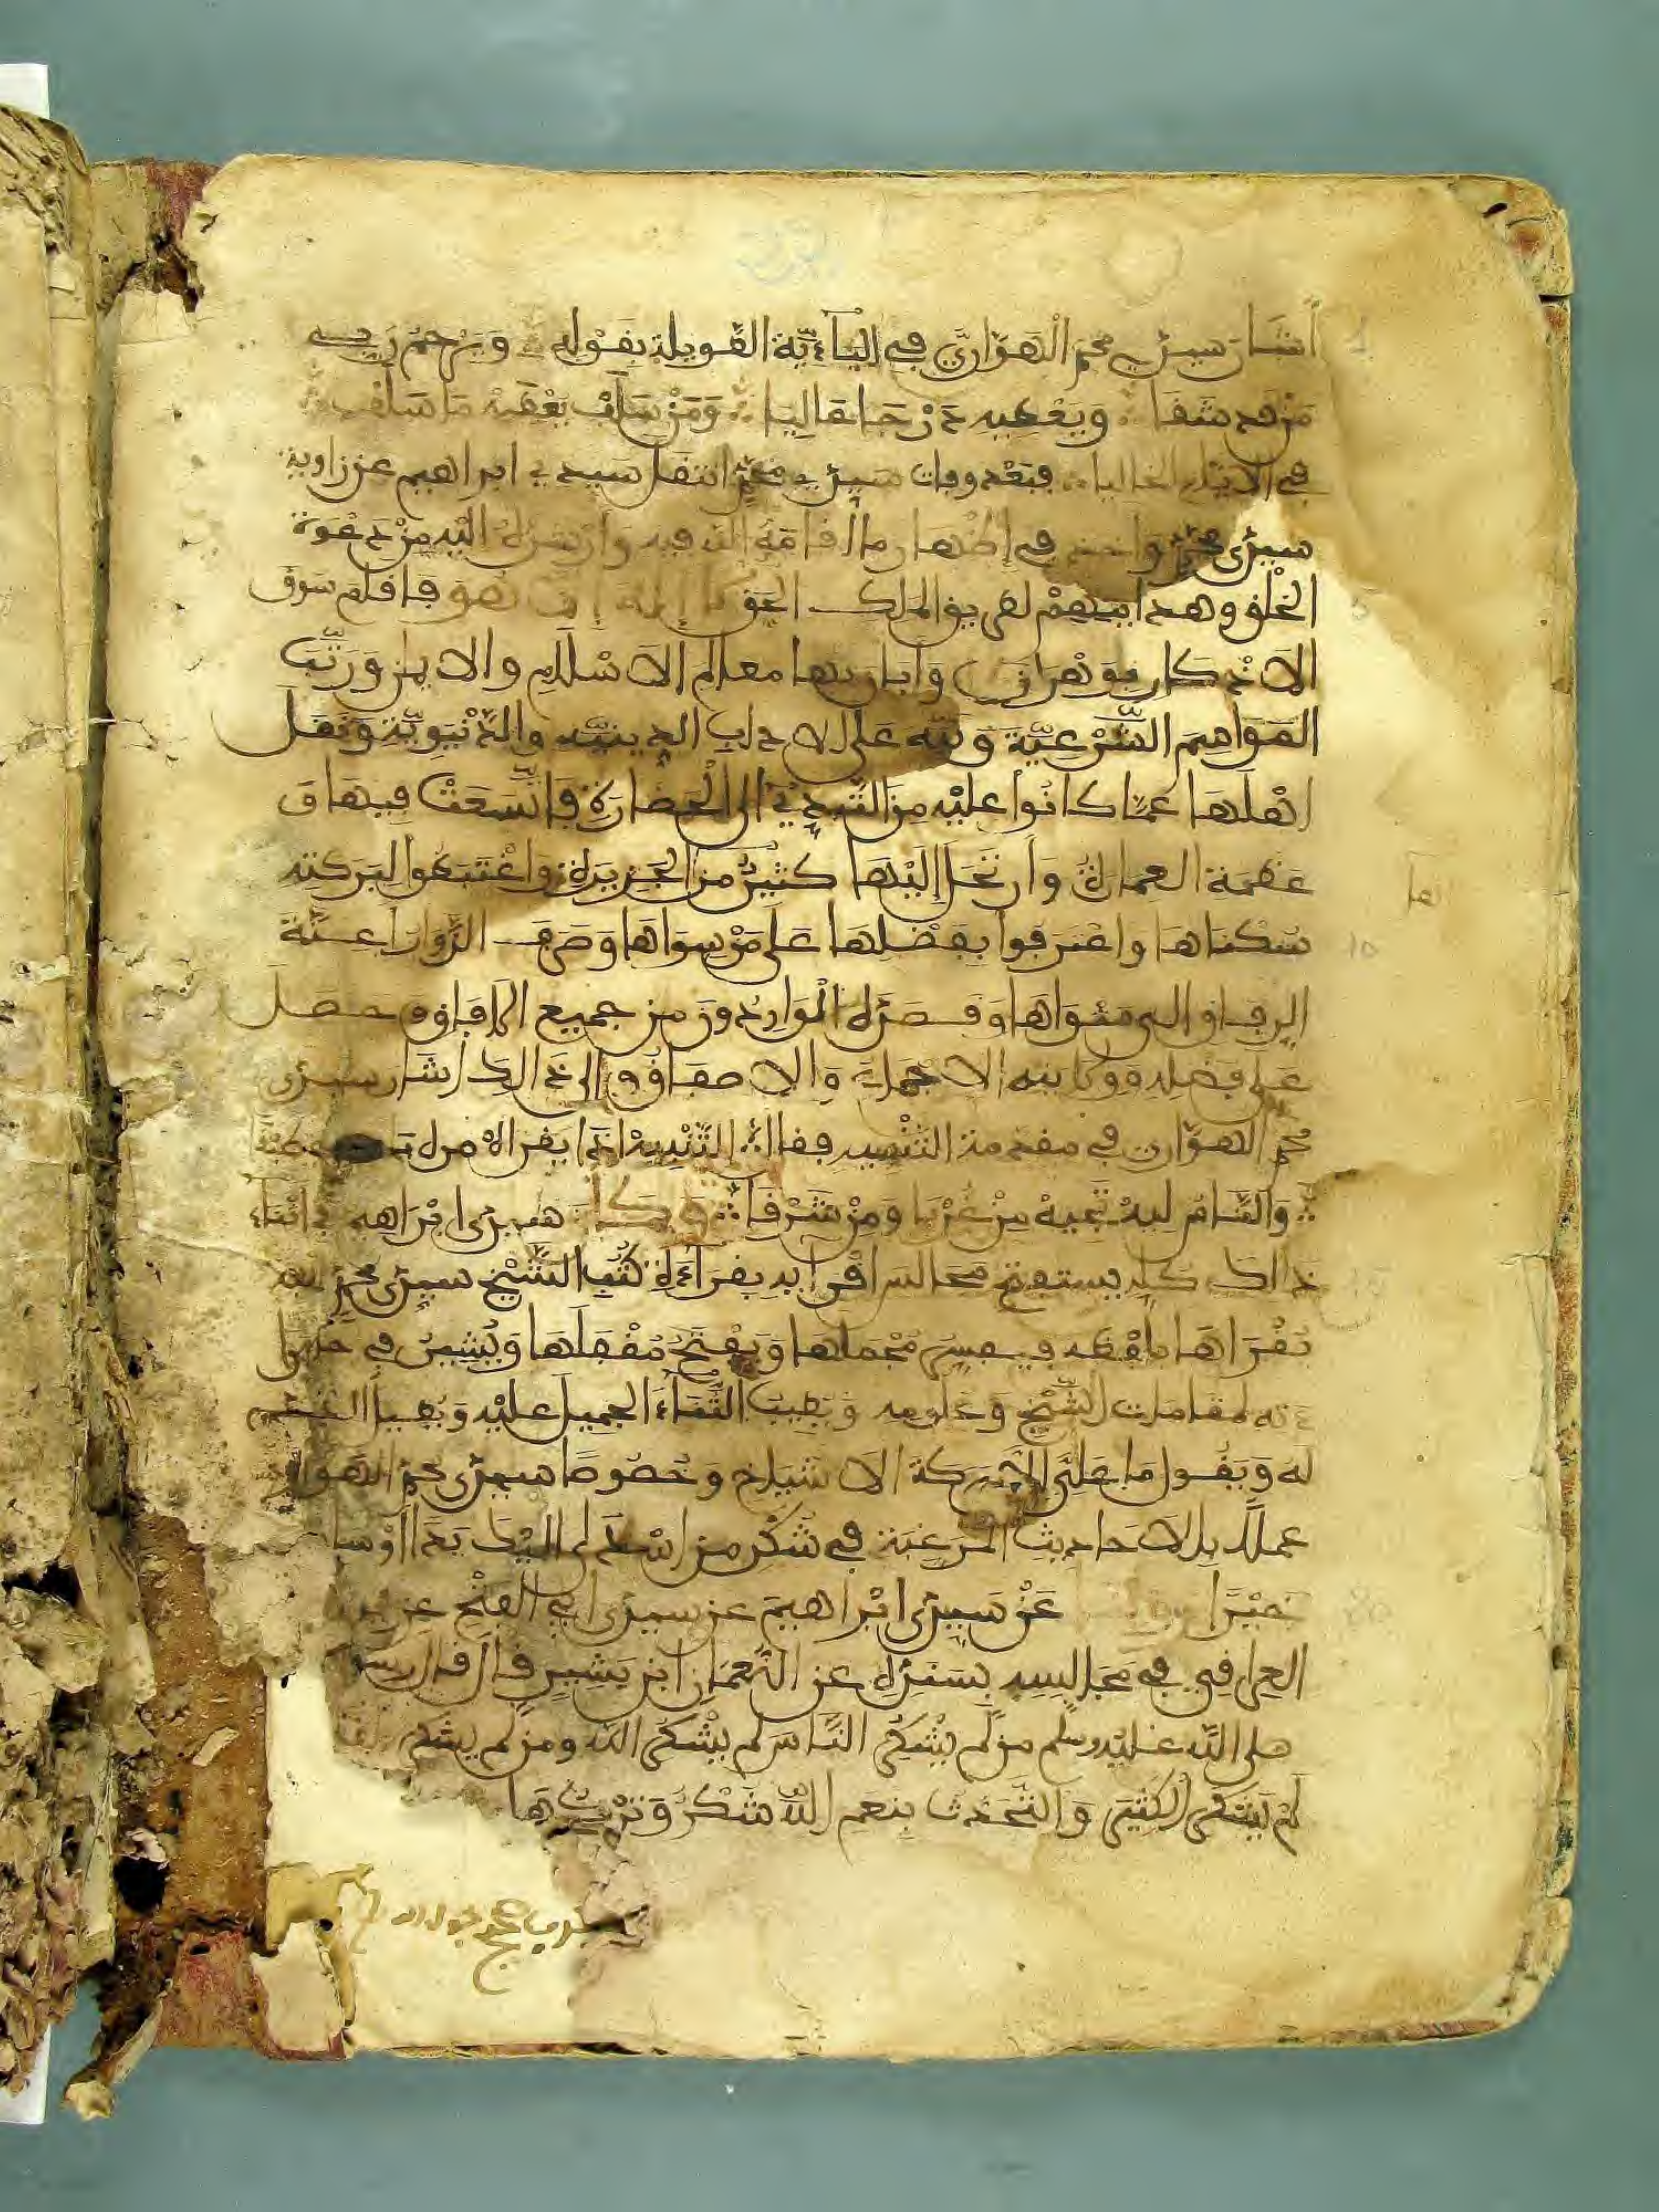 أشار سيدي محمد الهواري في اليائية الطويلة بقوله ويرحم ربي
من قد شفا ويعطيه درجا عاليا ومن سلف يعطه ما سلف
في الايام الخاليا فبعد وفات سيدي محمد انتقل سيدي ابراهيم عن زاوية
سيدي محمد واخذ في إظهار ما اقامه الله فيه وارشده اليه من دعوة
الخلق وهدايتهم لطريق الملك الحق لا إله إلا هو فاقام سوق
الاذكار بوهران وأبان بها معالم الاسلام والايمن ورتب
القواهم الشرعية ونبه على الاداب الدينية والدنيوية ونقل
اهلها عما كانوا عليه من التبدي الى الحضارة فاتسعت فيها
عظمة العمارة وارتحل إليها كثير من الجزيرة واغتبطوا لبركته
سكناها واعترفوا بفضلها على من سواها وصرف الزوار اعنة
الرفاق الى مثواها وقصده الواردون من جميع الافاق وحصل
على فضله وولايته الاجماع والاصفاق والى ذالك أشار سيدي
محمد الهواري في مقدمة التنبيه فقال التنبيه اذا يقرا الامر له
والناس ليه تجيه من غربا ومن شرقا وكان سيدي ابراهيم في اثناء
ذالك كله يستفتح مجالس اقرابه بقراءة كتب الشيخ سيدي محمد
يقراها بلفظه فيفسر مجملها ويفتح مقفلها ويشير في
لمقامات الشيخ وعلومه ويطيب الثناء الجميل عليه ويطيل
له ويقول ما صلني الا بركة الاشياخ وخصوصا سيدي محمد الهواري
عملا بالاحاديث المرغبة في شكر من اسدى اليك يدا أوسا
خيرا عن سيدي ابراهيم عن سيدي ابي الفتح عن
العراقي في مجالسه بسنده عن النعمان ابن بشير قال قال رسو
صلى الله عليه وسلم من لم يشكر الناس لم يشكر الله ومن لم يشكر
لم يشكر الكثير والتحدث بنعم الله شكر وتركها